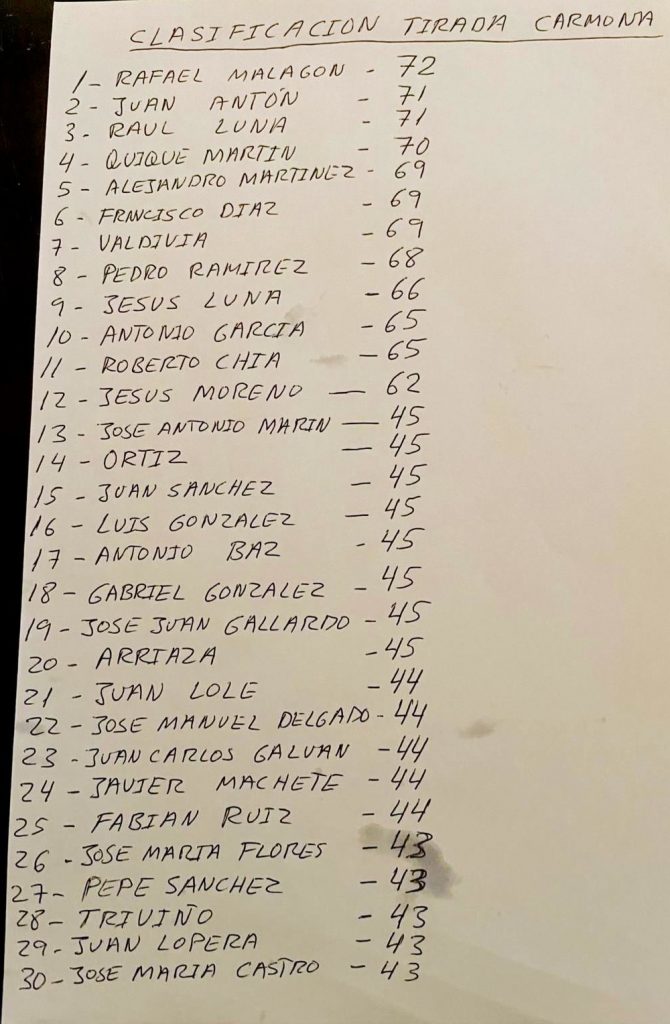 CLASIFICACION TIRADA CARMONA
1- RAFAEL MALAGON - 72
2- JUAN ANTÓN - 71
3- RAUL LUNA - 71
4- QUIQUE MARTIN - 70
5- ALEJANDRO MARTINEZ - 69
6- FRANCISCO DIAZ - 69
7- VALDIVIA - 69
8- PEDRO RAMIREZ - 68
9- JESUS LUNA - 66
10- ANTONIO GARCIA - 65
11- ROBERTO CHIA - 65
12- JESUS MORENO - 62
13- JOSE ANTONIO MARIN - 45
14- ORTIZ - 45
15- JUAN SANCHEZ - 45
16- LUIS GONZALEZ - 45
17- ANTONIO BAZ - 45
18- GABRIEL GONZALEZ - 45
19- JOSE JUAN GALLARDO - 45
20- ARRIAZA - 45
21- JUAN LOLE - 44
22- JOSE MANUEL DELGADO - 44
23- JUAN CARLOS GALVAN - 44
24- JAVIER MACHETE - 44
25- FABIAN RUIZ - 44
26- JOSE MARIA FLORES - 43
27- PEPE SANCHEZ - 43
28- TRIVIÑO - 43
29- JUAN LOPERA - 43
30- JOSE MARIA CASTRO - 43